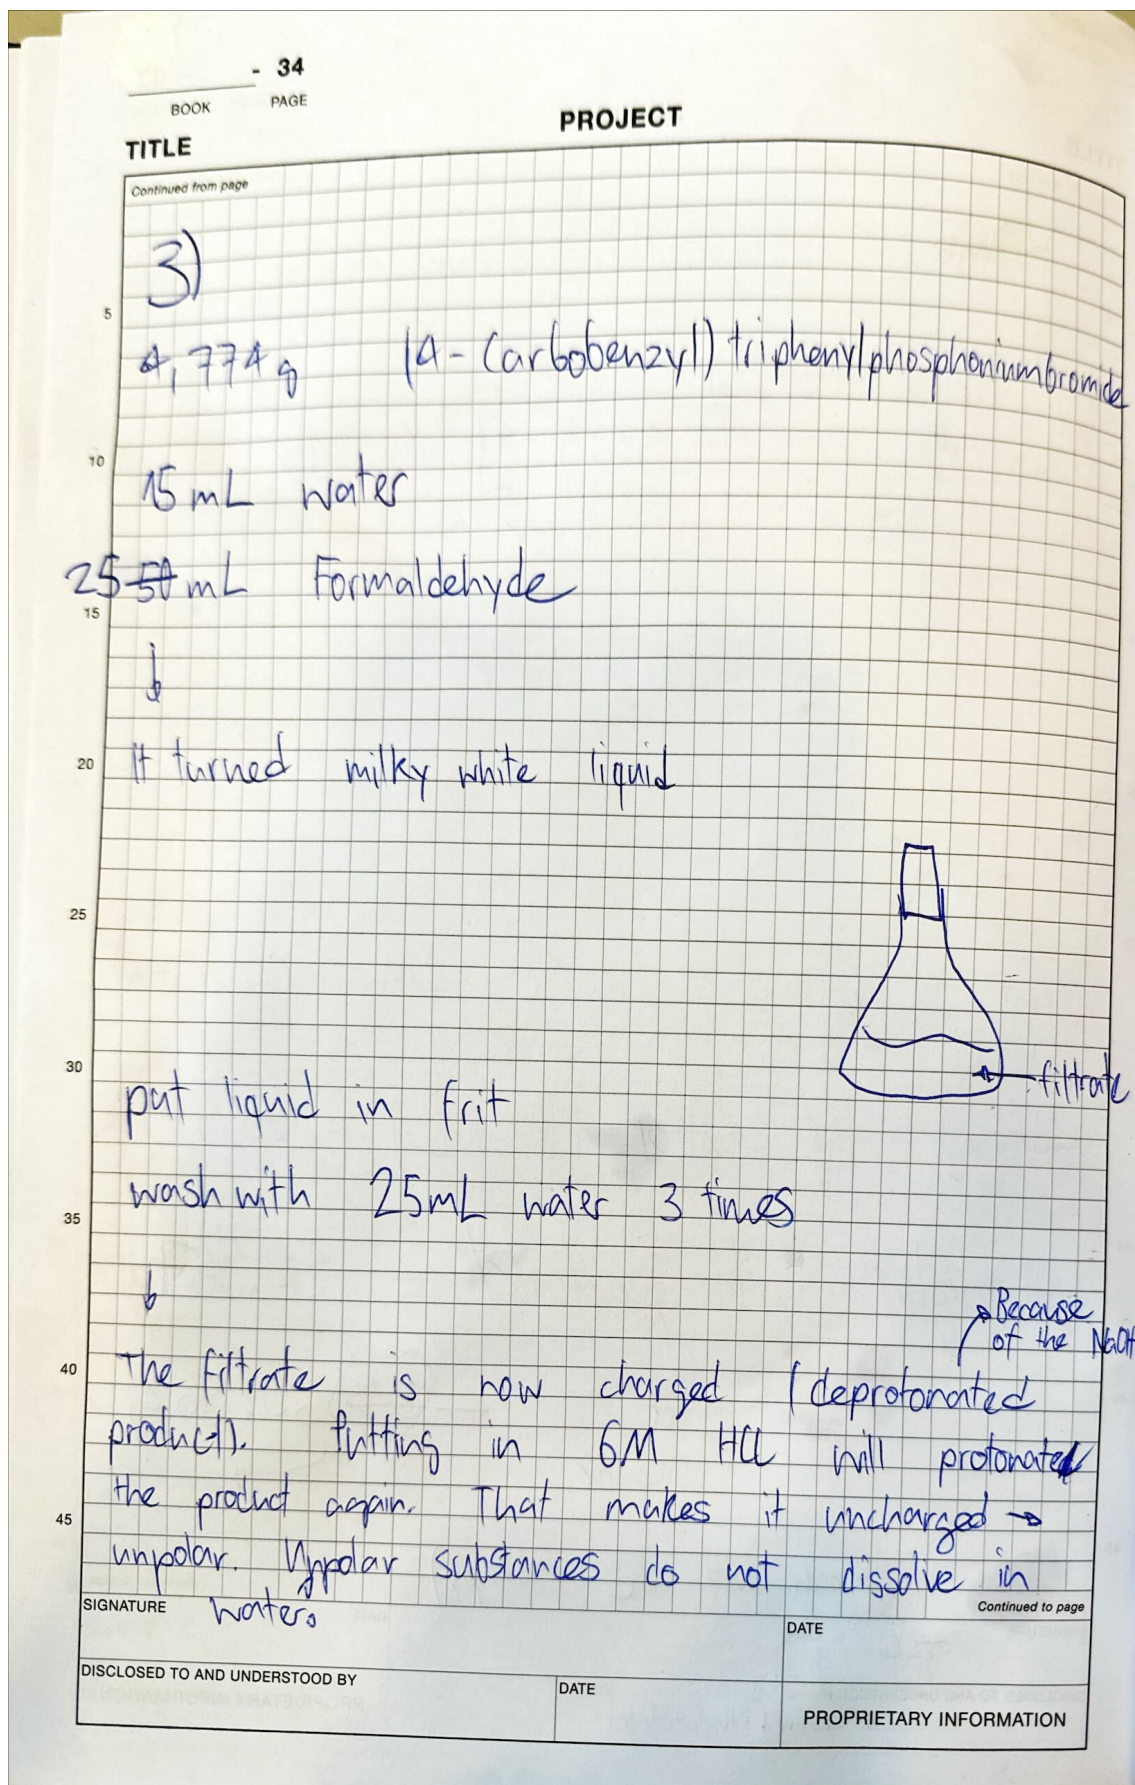 - 34
BOOK PAGE
PROJECT
TITLE
Continued from page
3)
5
4,774g (4-Carbobenzyl) triphenylphosphoniumbromide
10
15 mL water
25 50 mL Formaldehyde
15
It turned milky white liquid
20
25
filtrate
30
put liquid in frit
wash with 25mL water 3 times
35
Because
of the NaOH
40
The filtrate is now charged (deprotonated
product). Putting in 6M HCl will protonate
the product again. That makes it uncharged →
45
unpolar. Unpolar substances do not dissolve in
water.
SIGNATURE
Continued to page
DATE
DISCLOSED TO AND UNDERSTOOD BY
DATE
PROPRIETARY INFORMATION